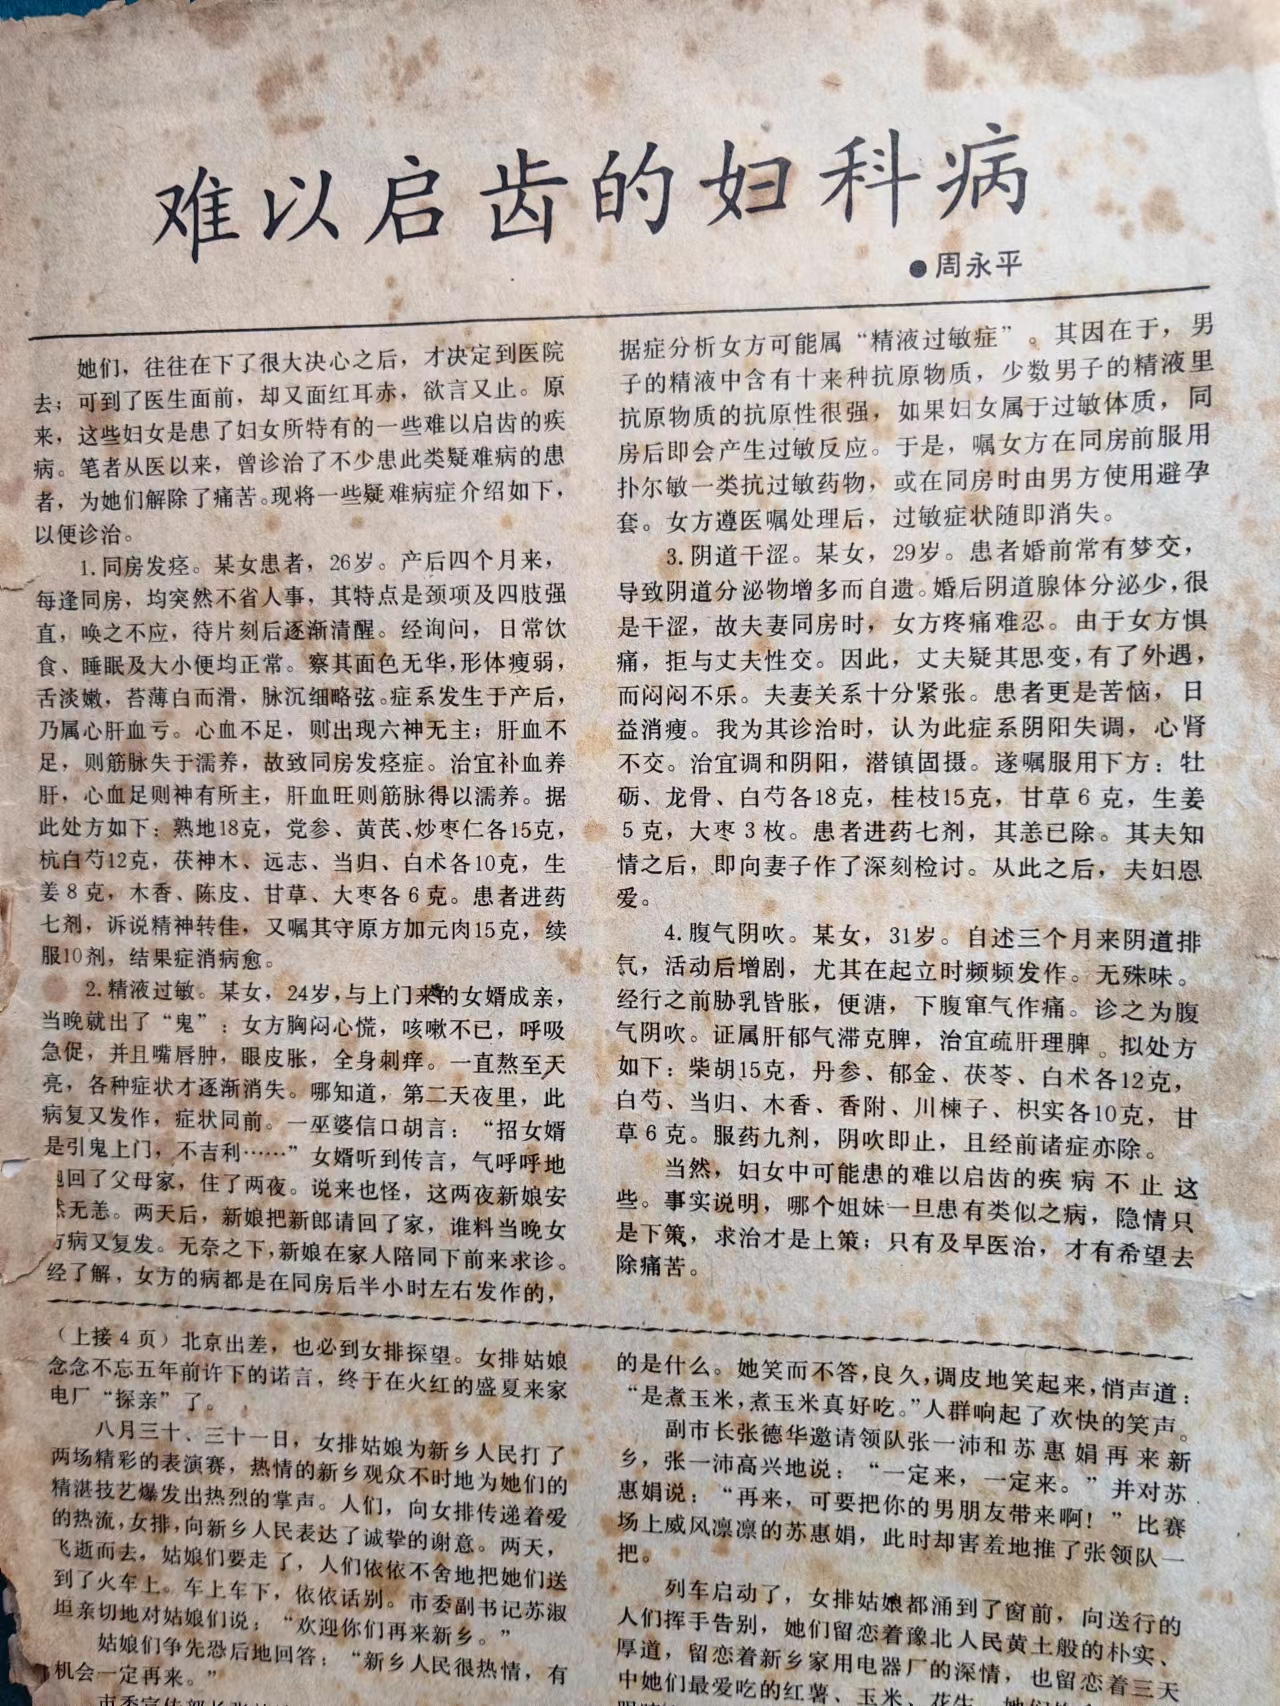 难以启齿的妇科病
●周永平
她们，往往在下了很大决心之后，才决定到医院
去；可到了医生面前，却又面红耳赤，欲言又止。原
来，这些妇女是患了妇女所特有的一些难以启齿的疾
病。笔者从医以来，曾诊治了不少患此类疑难病的患
者，为她们解除了痛苦。现将一些疑难病症介绍如下，
以便诊治。
1.同房发痉。某女患者，26岁。产后四个月来，
每逢同房，均突然不省人事，其特点是颈项及四肢强
直，唤之不应，待片刻后逐渐清醒。经询问，日常饮
食、睡眠及大小便均正常。察其面色无华，形体瘦弱，
舌淡嫩，苔薄白而滑，脉沉细略弦。症系发生于产后，
乃属心肝血亏。心血不足，则出现六神无主；肝血不
足，则筋脉失于濡养，故致同房发痉症。治宜补血养
肝，心血足则神有所主，肝血旺则筋脉得以濡养。据
此处方如下：熟地18克，党参、黄芪、炒枣仁各15克，
杭白芍12克，茯神木、远志、当归、白术各10克，生
姜8克，木香、陈皮、甘草、大枣各6克。患者进药
七剂，诉说精神转佳，又嘱其守原方加元肉15克，续
服10剂，结果症消病愈。
2.精液过敏。某女，24岁，与上门来的女婿成亲，
当晚就出了“鬼”：女方胸闷心慌，咳嗽不已，呼吸
急促，并且嘴唇肿，眼皮胀，全身刺痒。一直熬至天
亮，各种症状才逐渐消失。哪知道，第二天夜里，此
病复又发作，症状同前。一巫婆信口胡言：“招女婿
是引鬼上门，不吉利……”女婿听到传言，气呼呼地
跑回了父母家，住了两夜。说来也怪，这两夜新娘安
然无恙。两天后，新娘把新郎请回了家，谁料当晚女
方病又复发。无奈之下，新娘在家人陪同下前来求诊。
经了解，女方的病都是在同房后半小时左右发作的，
据症分析女方可能属“精液过敏症”。其因在于，男
子的精液中含有十来种抗原物质，少数男子的精液里
抗原物质的抗原性很强，如果妇女属于过敏体质，同
房后即会产生过敏反应。于是，嘱女方在同房前服用
扑尔敏一类抗过敏药物，或在同房时由男方使用避孕
套。女方遵医嘱处理后，过敏症状随即消失。
3.阴道干涩。某女，29岁。患者婚前常有梦交，
导致阴道分泌物增多而自遗。婚后阴道腺体分泌少，很
是干涩，故夫妻同房时，女方疼痛难忍。由于女方惧
痛，拒与丈夫性交。因此，丈夫疑其思变，有了外遇，
而闷闷不乐。夫妻关系十分紧张。患者更是苦恼，日
益消瘦。我为其诊治时，认为此症系阴阳失调，心肾
不交。治宜调和阴阳，潜镇固摄。遂嘱服用下方：牡
砺、龙骨、白芍各18克，桂枝15克，甘草6克，生姜
5克，大枣3枚。患者进药七剂，其恙已除。其夫知
情之后，即向妻子作了深刻检讨。从此之后，夫妇恩
爱。
4.腹气阴吹。某女，31岁。自述三个月来阴道排
气，活动后增剧，尤其在起立时频频发作。无殊味。
经行之前胁乳皆胀，便溏，下腹窜气作痛。诊之为腹
气阴吹。证属肝郁气滞克脾，治宜疏肝理脾。拟处方
如下：柴胡15克，丹参、郁金、茯苓、白术各12克，
白芍、当归、木香、香附、川楝子、枳实各10克，甘
草6克。服药九剂，阴吹即止，且经前诸症亦除。
当然，妇女中可能患的难以启齿的疾病不止这
些。事实说明，哪个姐妹一旦患有类似之病，隐情只
是下策，求治才是上策；只有及早医治，才有希望去
除痛苦。
（上接4页）北京出差，也必到女排探望。女排姑娘
念念不忘五年前许下的诺言，终于在火红的盛夏来家
电厂“探亲”了。
八月三十、三十一日，女排姑娘为新乡人民打了
两场精彩的表演赛，热情的新乡观众不时地为她们的
精湛技艺爆发出热烈的掌声。人们，向女排传递着爱
的热流，女排，向新乡人民表达了诚挚的谢意。两天，
飞逝而去，姑娘们要走了，人们依依不舍地把她们送
到了火车上。车上车下，依依话别。市委副书记苏淑
坦亲切地对姑娘们说：“欢迎你们再来新乡。”
姑娘们争先恐后地回答：“新乡人民很热情，有
机会一定再来。”
的是什么。她笑而不答，良久，调皮地笑起来，悄声道：
“是煮玉米，煮玉米真好吃。”人群响起了欢快的笑声。
副市长张德华邀请领队张一沛和苏惠娟再来新
乡，张一沛高兴地说：“一定来，一定来。”并对苏
惠娟说：“再来，可要把你的男朋友带来啊！”比赛
场上威风凛凛的苏惠娟，此时却害羞地推了张领队一
把。
列车启动了，女排姑娘都涌到了窗前，向送行的
人们挥手告别，她们留恋着豫北人民黄土般的朴实、
厚道，留恋着新乡家用电器厂的深情，也留恋着三天
中她们最爱吃的红薯、玉米、花生